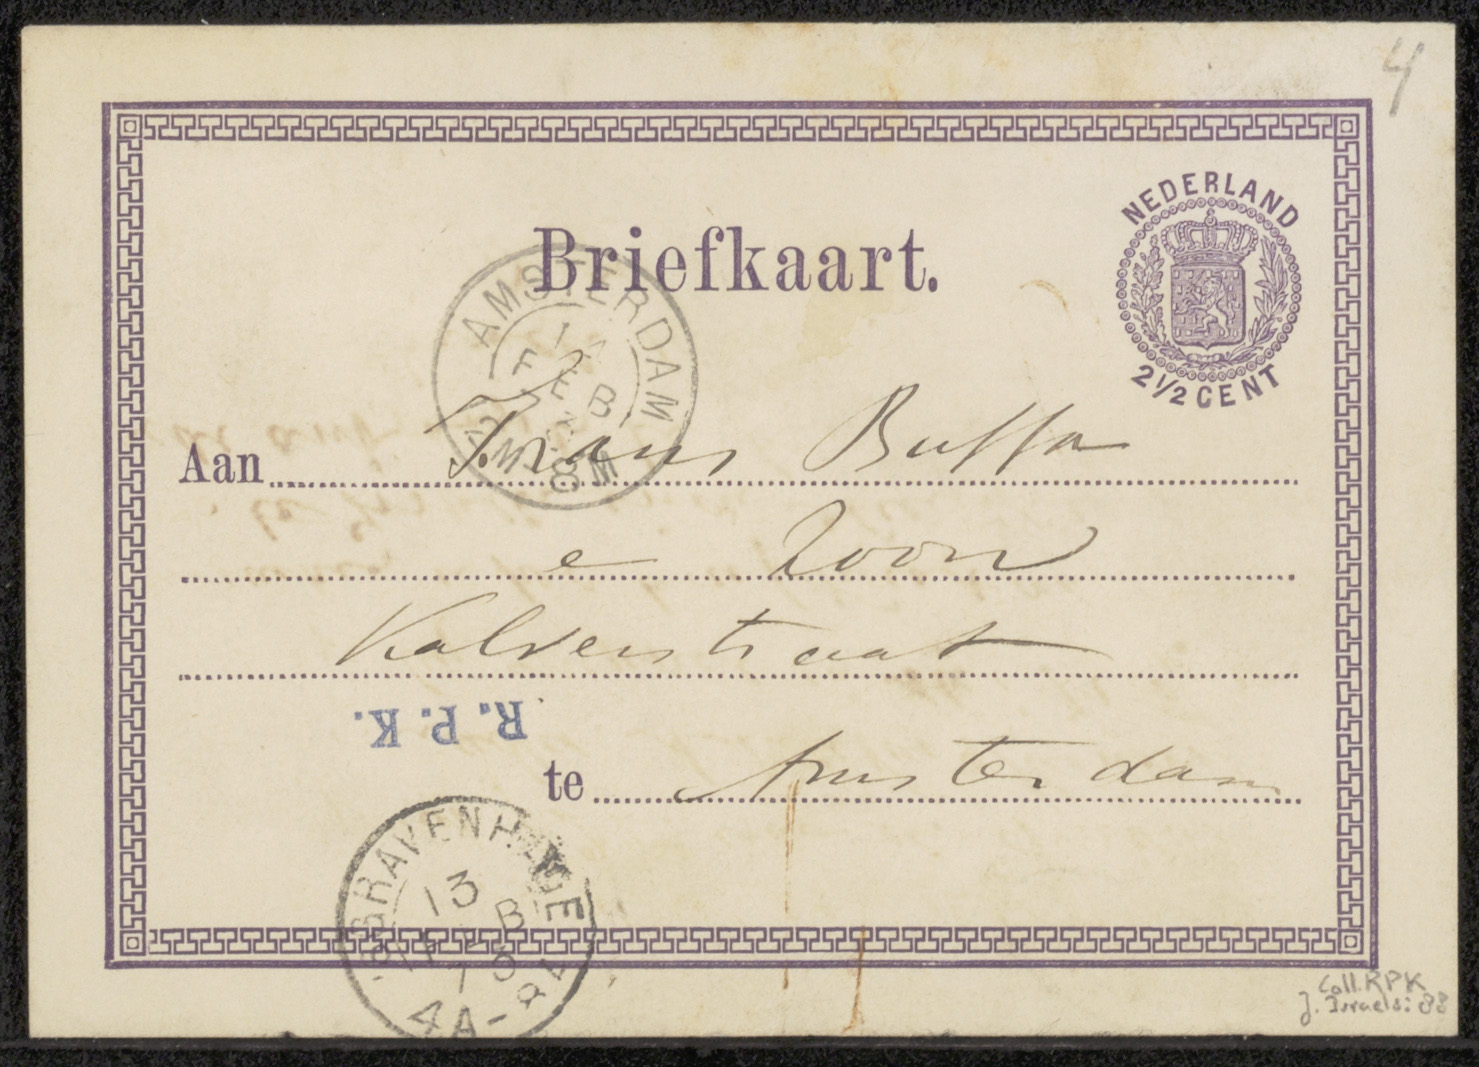 4
NEDERLAND
Briefkaart.
2½ CENT
AMSTERDAM
FEB
Aan Frans Buffa
e Zoon
Kalverstraat
R.P.K.
te Amsterdam
'SGRAVENHAGE
13
FEB
4A-8
Coll. RPK
J. Israels: 88